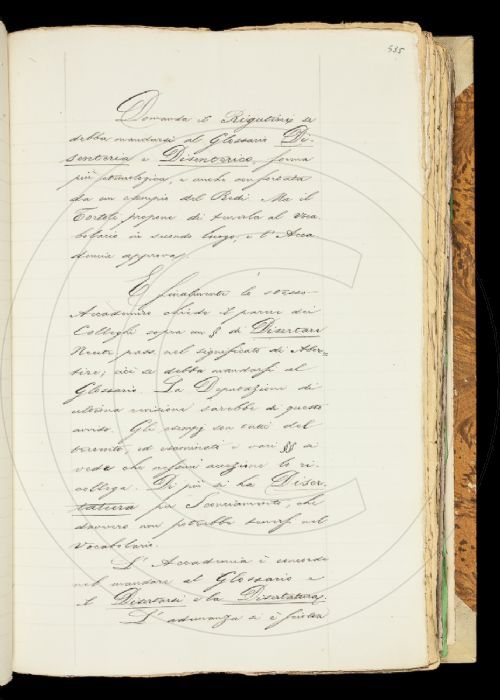 535
Domanda il Rigutini se
debba mandarsi al Glossario Di-
senteria e Disenterico, forma
più etimologica, e anche confortata
da un esempio del Redi. Ma il
Tortoli propone di tenerla al Voca
bolario in secondo luogo, e l'Acca
demia approva.
E finalmente lo stesso
Accademico chiede il parere dei
Colleghi sopra un § di Disertare
Neutr. pass. nel significato di Abor=
tire; cioè se debba mandarsi al
Glossario. La Deputazione di
ultima revisione sarebbe di questo
avviso. Gli esempj son tutti del
ed esaminati i vari §§ si
vede che nessuna accezione lo ri
collega. Di più si ha Diser-
tatura per Sconciamento, che
davvero non potrebbe tenersi nel
Vocabolario.
L'Accademia è concorde
nel mandare al Glossario e
il Disertarsi e la Disertatura.
L'adunanza si è sciolta